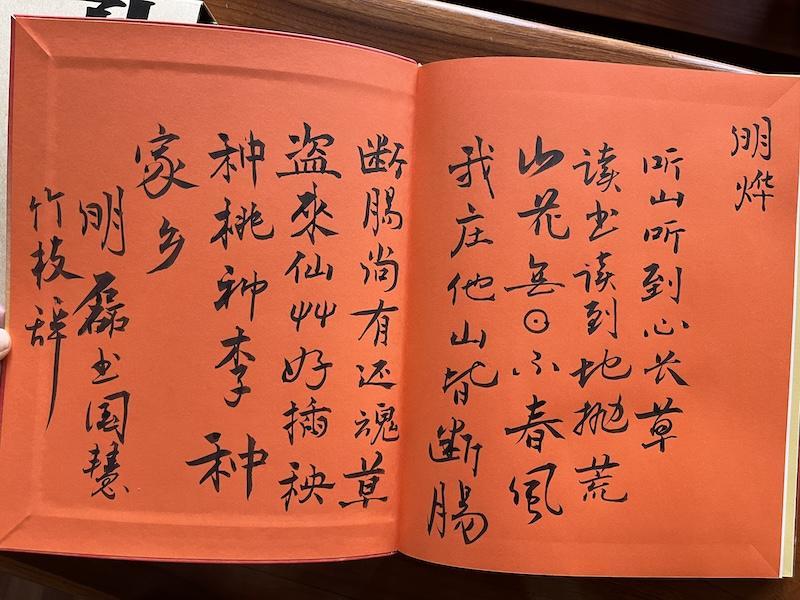 明烨
听山听到心长草
读书读到地抛荒
山花無日不春風
我庄他山皆断腸
断腸尚有还魂草
盗來仙艸好插秧
种桃种李种
家乡
明磊书国慧
竹枝辞